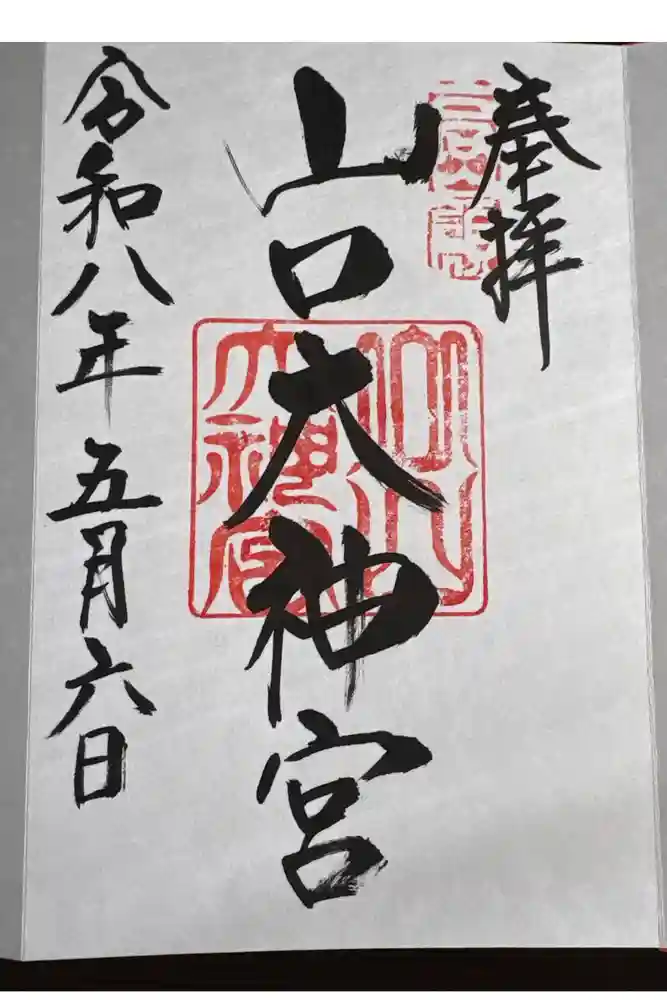 奉拝
山口大神宮
山口大神宮
令和八年五月六日